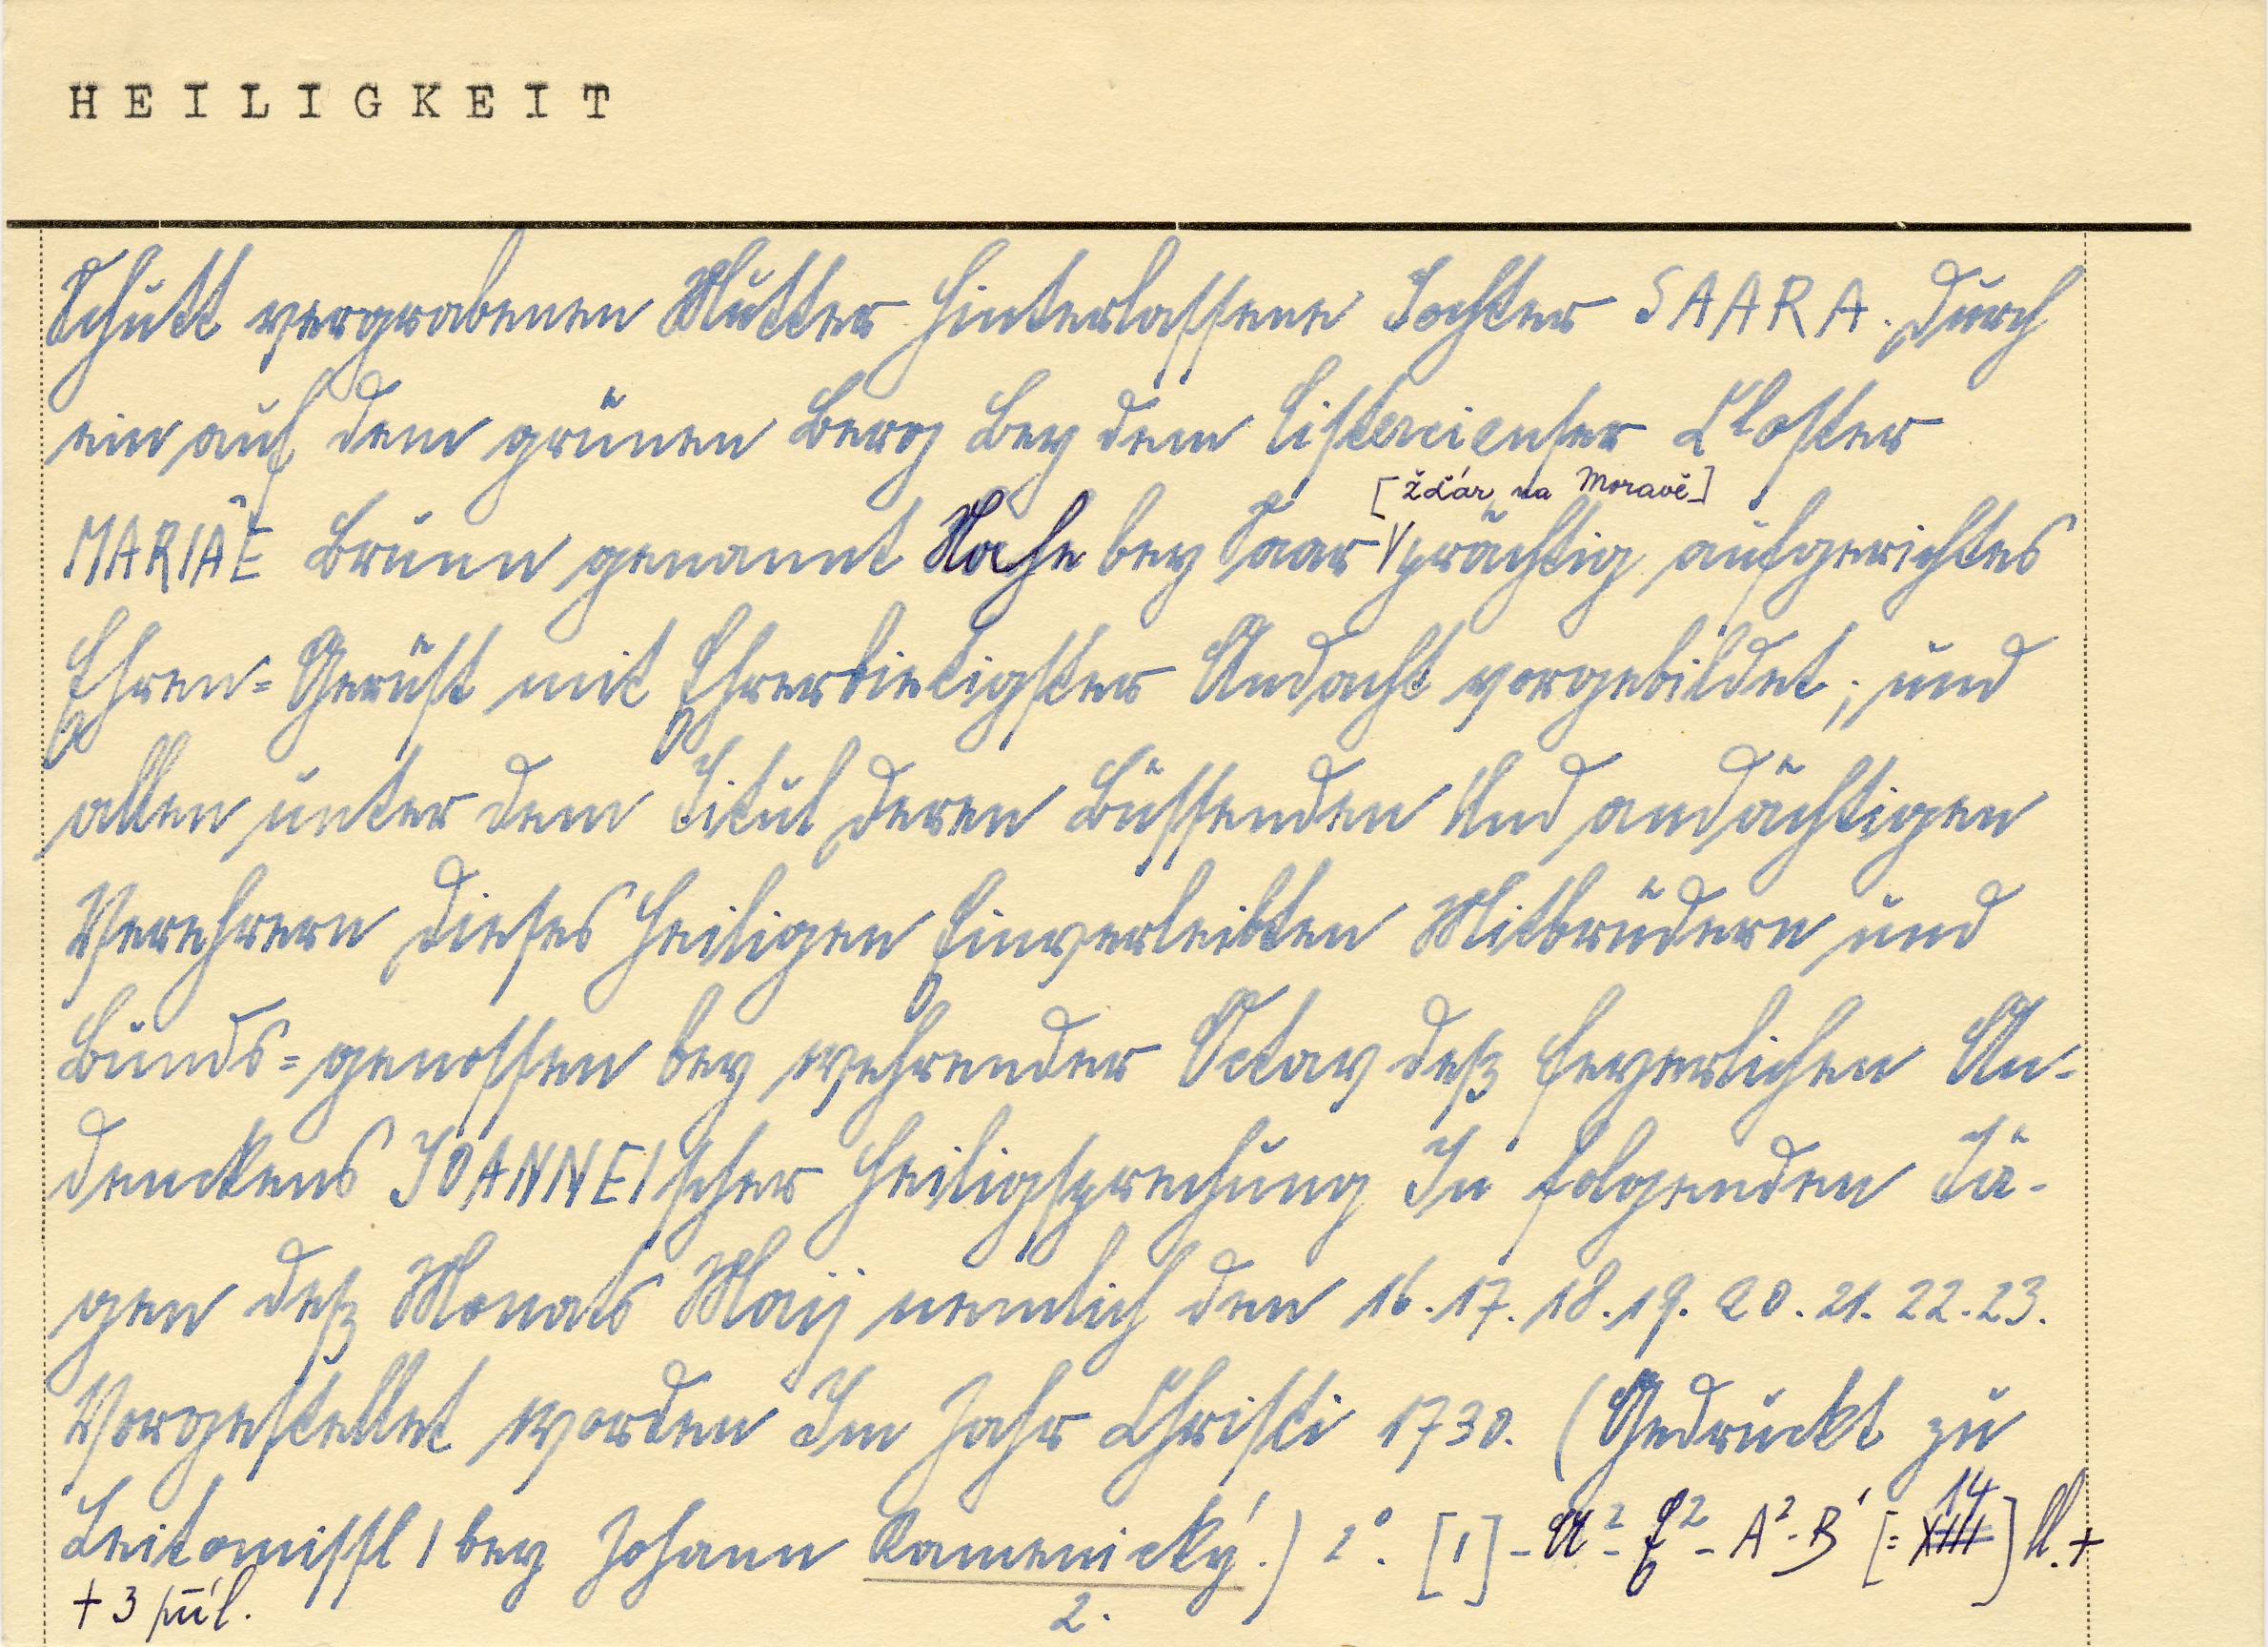 HEILIGKEIT
Schutt vergrabenen Mutter hinterlassene Tochter SAARA. Durch
ein auf dem grünen Berg bey dem Cistercienser Closter
[Žďár na Moravě]
MARIAE Brunn genannt Nahe bey Saar prächtig aufgerichtes
Ehren=Gerüst mit Ehrerbietigster Andacht vorgebildet; und
allen unter dem Titul deren Büssenden Und andächtigen
Verehrern dieses Heiligen Einverleibten Mitbrüdern und
Bunds=genossen bey wehrender Octav deß feyerlichen An-
denckens JOANNEIscher Heiligsprechung In folgenden Tä-
gen deß Monats Maij nemlich den 16. 17. 18. 19. 20. 21. 22. 23.
Vorgestellet worden Im Jahr Christi 1730. (Gedruckt zu
Leitomissl / bey Johann Kamenický.) 2°. [1] - A²- E² - A²- B¹ [= 14] ll. +
+ 3 příl. 2.